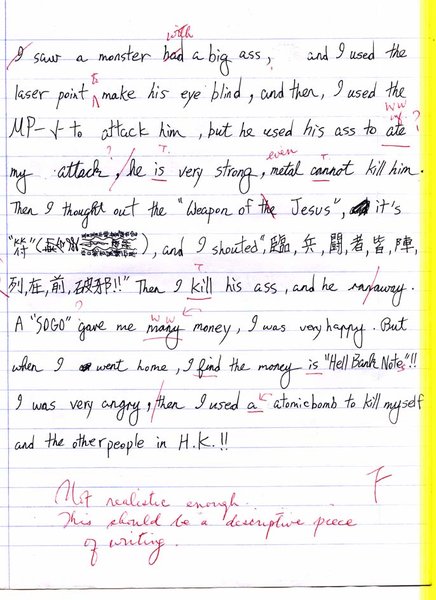 with
I saw a monster bad a big ass, and I used the
laser point to make his eye blind, and then, I used the
MP-√ to attack him, but he used his ass to ate ww ?
my attack, he is very strong, even metal cannot kill him.
Then I thought out the "Weapon of the Jesus", it's
"符" ( ), and I shouted", 臨, 兵, 鬭, 者, 皆, 陣,
列, 在, 前, 破邪!!" Then I kill his ass, and he ran away.
A "SOGO" gave me many money, I was very happy. But
when I went home, I find the money is "Hell Bank Notes"!!
I was very angry, then I used a atomic bomb to kill myself
and the other people in H.K.!!
F
Not realistic enough.
This should be a descriptive piece
of writing.